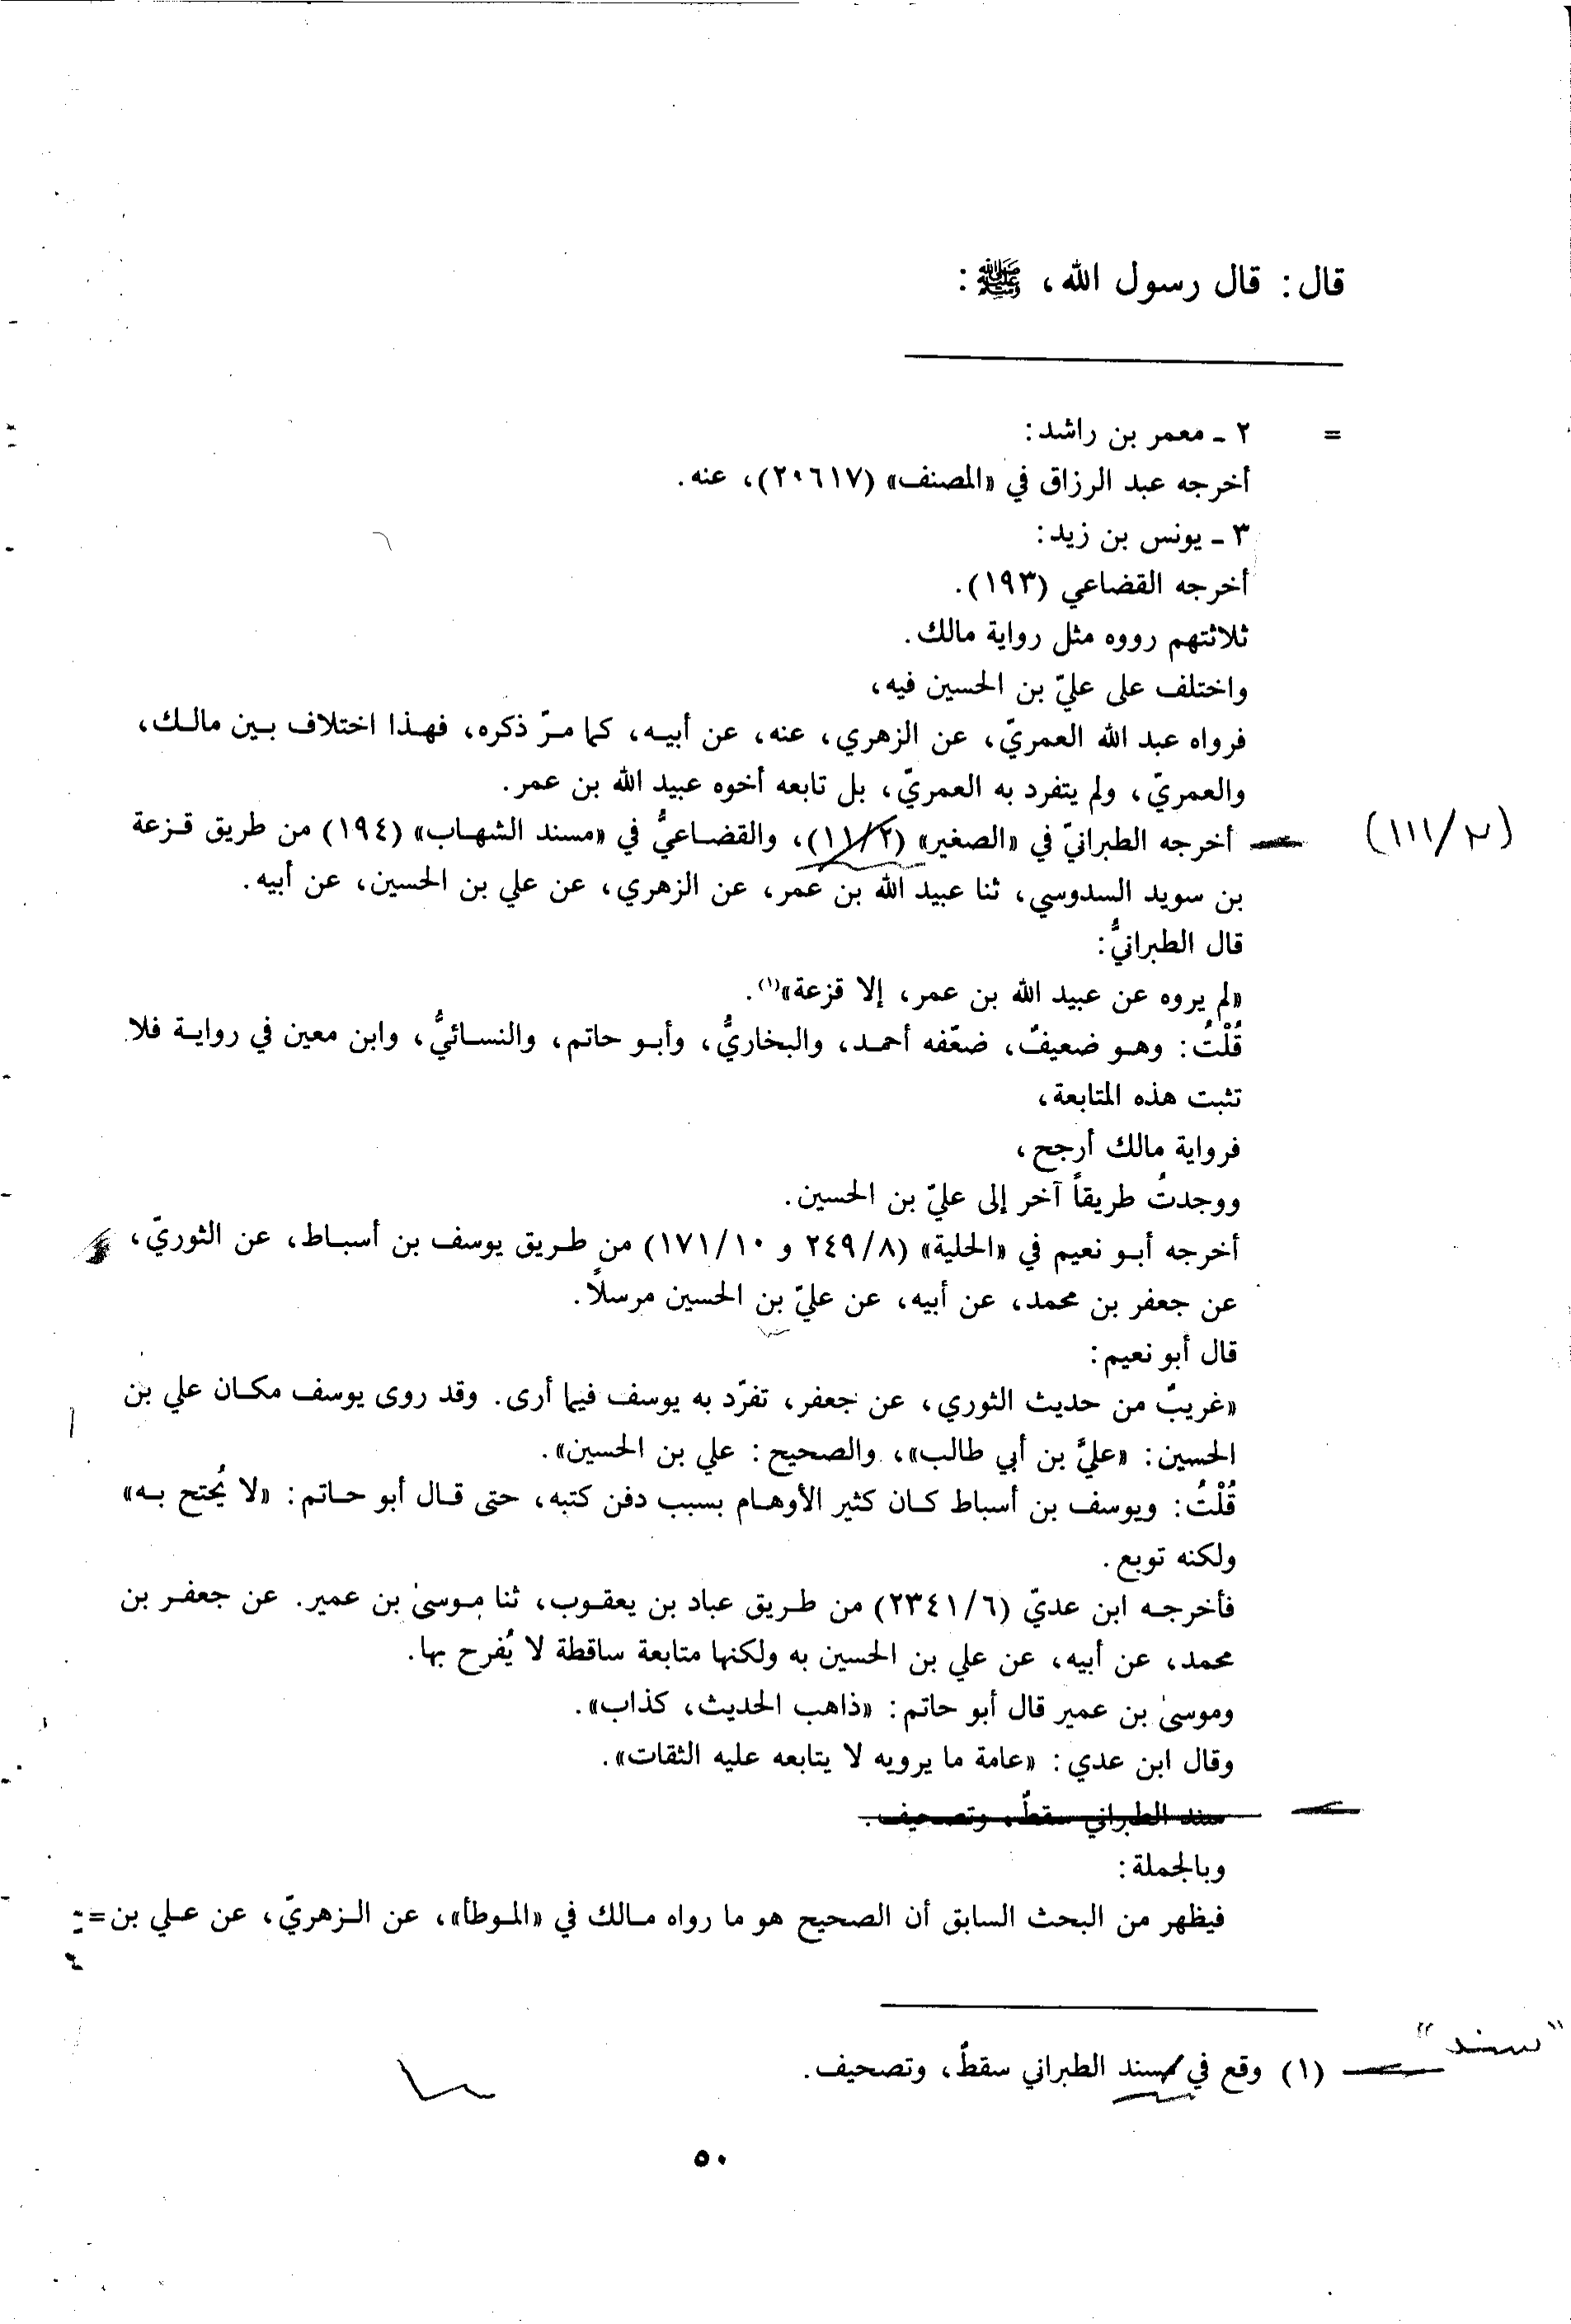 قال: قال رسول الله، ﷺ:
= ٢ ـ معمر بن راشد:
أخرجه عبد الرزاق في «المصنف» (٢٠٦١٧)، عنه.
٣ ـ يونس بن زيد:
أخرجه القضاعي (١٩٣).
ثلاثتهم رووه مثل رواية مالك.
واختلف على عليّ بن الحسين فيه،
فرواه عبد الله العمريّ، عن الزهري، عنه، عن أبيه، كما مرّ ذكره، فهذا اختلاف بين مالك،
والعمريّ، ولم يتفرد به العمريّ، بل تابعه أخوه عبيد الله بن عمر.
(٢/١١١)
أخرجه الطبرانيّ في «الصغير» (١١/٢)، والقضاعيُّ في «مسند الشهاب» (١٩٤) من طريق قزعة
بن سويد السدوسي، ثنا عبيد الله بن عمر، عن الزهري، عن علي بن الحسين، عن أبيه.
قال الطبرانيُّ:
«لم يروه عن عبيد الله بن عمر، إلا قزعة»(١).
قُلْتُ: وهو ضعيفٌ، ضعّفه أحمد، والبخاريُّ، وأبو حاتم، والنسائيُّ، وابن معين في رواية فلا
تثبت هذه المتابعة،
فرواية مالك أرجح،
ووجدتُ طريقاً آخر إلى عليّ بن الحسين.
أخرجه أبو نعيم في «الحلية» (٢٤٩/٨ و ١٧١/١٠) من طريق يوسف بن أسباط، عن الثوريّ،
عن جعفر بن محمد، عن أبيه، عن عليّ بن الحسين مرسلاً.
قال أبو نعيم:
«غريبٌ من حديث الثوري، عن جعفر، تفرّد به يوسف فيما أرى. وقد روى يوسف مكان علي بن
الحسين: «عليَّ بن أبي طالب»، والصحيح: علي بن الحسين».
قُلْتُ: ويوسف بن أسباط كان كثير الأوهام بسبب دفن كتبه، حتى قال أبو حاتم: «لا يُحتج به»
ولكنه توبع.
فأخرجه ابن عديّ (٢٣٤١/٦) من طريق عباد بن يعقوب، ثنا موسىٰ بن عمير. عن جعفر بن
محمد، عن أبيه، عن علي بن الحسين به ولكنها متابعة ساقطة لا يُفرح بها.
وموسىٰ بن عمير قال أبو حاتم: «ذاهب الحديث، كذاب».
وقال ابن عدي: «عامة ما يرويه لا يتابعه عليه الثقات».
سند الطبراني سقطٌ، وتصحيف.
وبالجملة:
فيظهر من البحث السابق أن الصحيح هو ما رواه مالك في «الموطأ»، عن الزهريّ، عن علي بن=
"سند"
(١) وقع في مسند الطبراني سقطٌ، وتصحيف.
٥٠